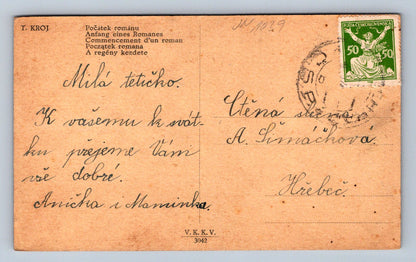 T. KROJ
Počátek románu
Anfang eines Romanes
Commencement d'un roman
Początek romana
A regény kezdete
Milá tetičko.
K vašemu k svát-
ku přejeme Vám
vše dobré.
Anička i Maminka.
V. K. K. V.
3042
50 50
Ctěná
A. Šimáčková
Hřebeč.